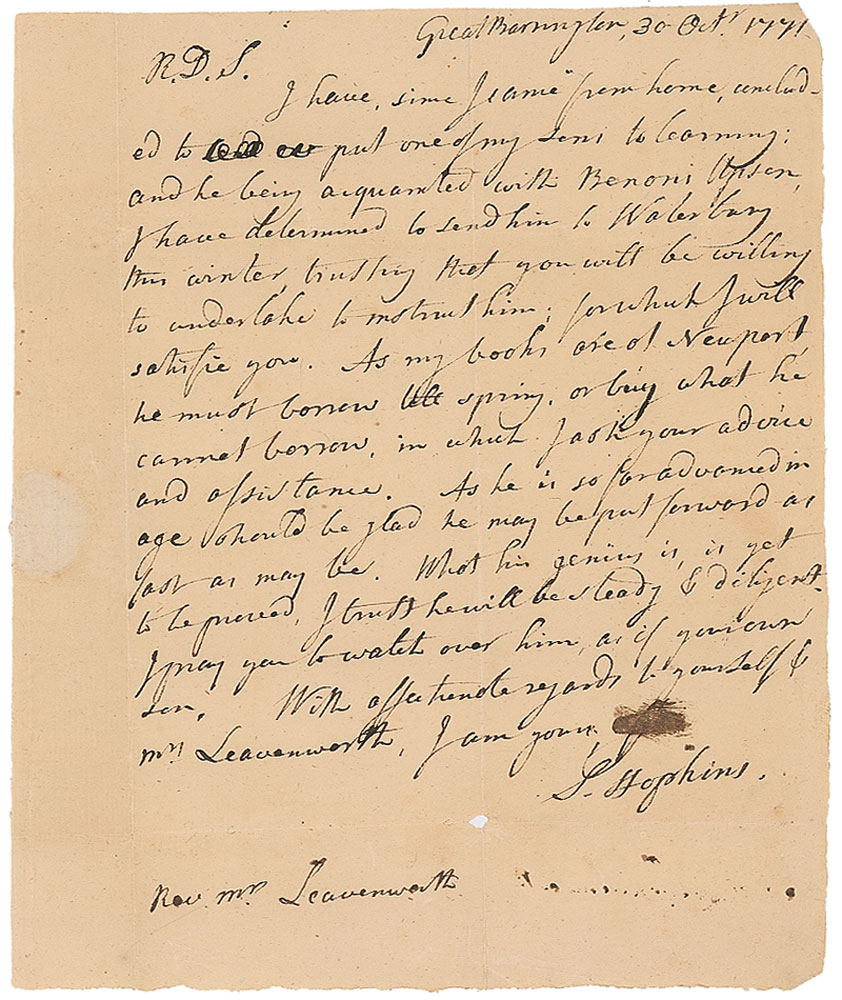 Great Barrington, 30 Octr. 1771
R. D. S.
I have, since I came from home, conclud-
ed to put one of my sons to learning;
and he being acquainted with Benoni Upson,
I have determined to send him to Waterbury
this winter, trusting that you will be willing
to undertake to instruct him; for which I will
satisfie you. As my books are at Newport,
he must borrow till spring, or buy what he
cannot borrow, in which I ask your advice
and assistance. As he is so far advanced in
age should be glad he may be put forward as
fast as may be. What his genius is, is yet
to be proved, I trust he will be steady & diligent.
I pray you to watch over him, as if your own
son. With affectionate regards to yourself &
mrs Leavenworth, I am yours,
S. Hopkins.
Rev. mr. Leavenworth